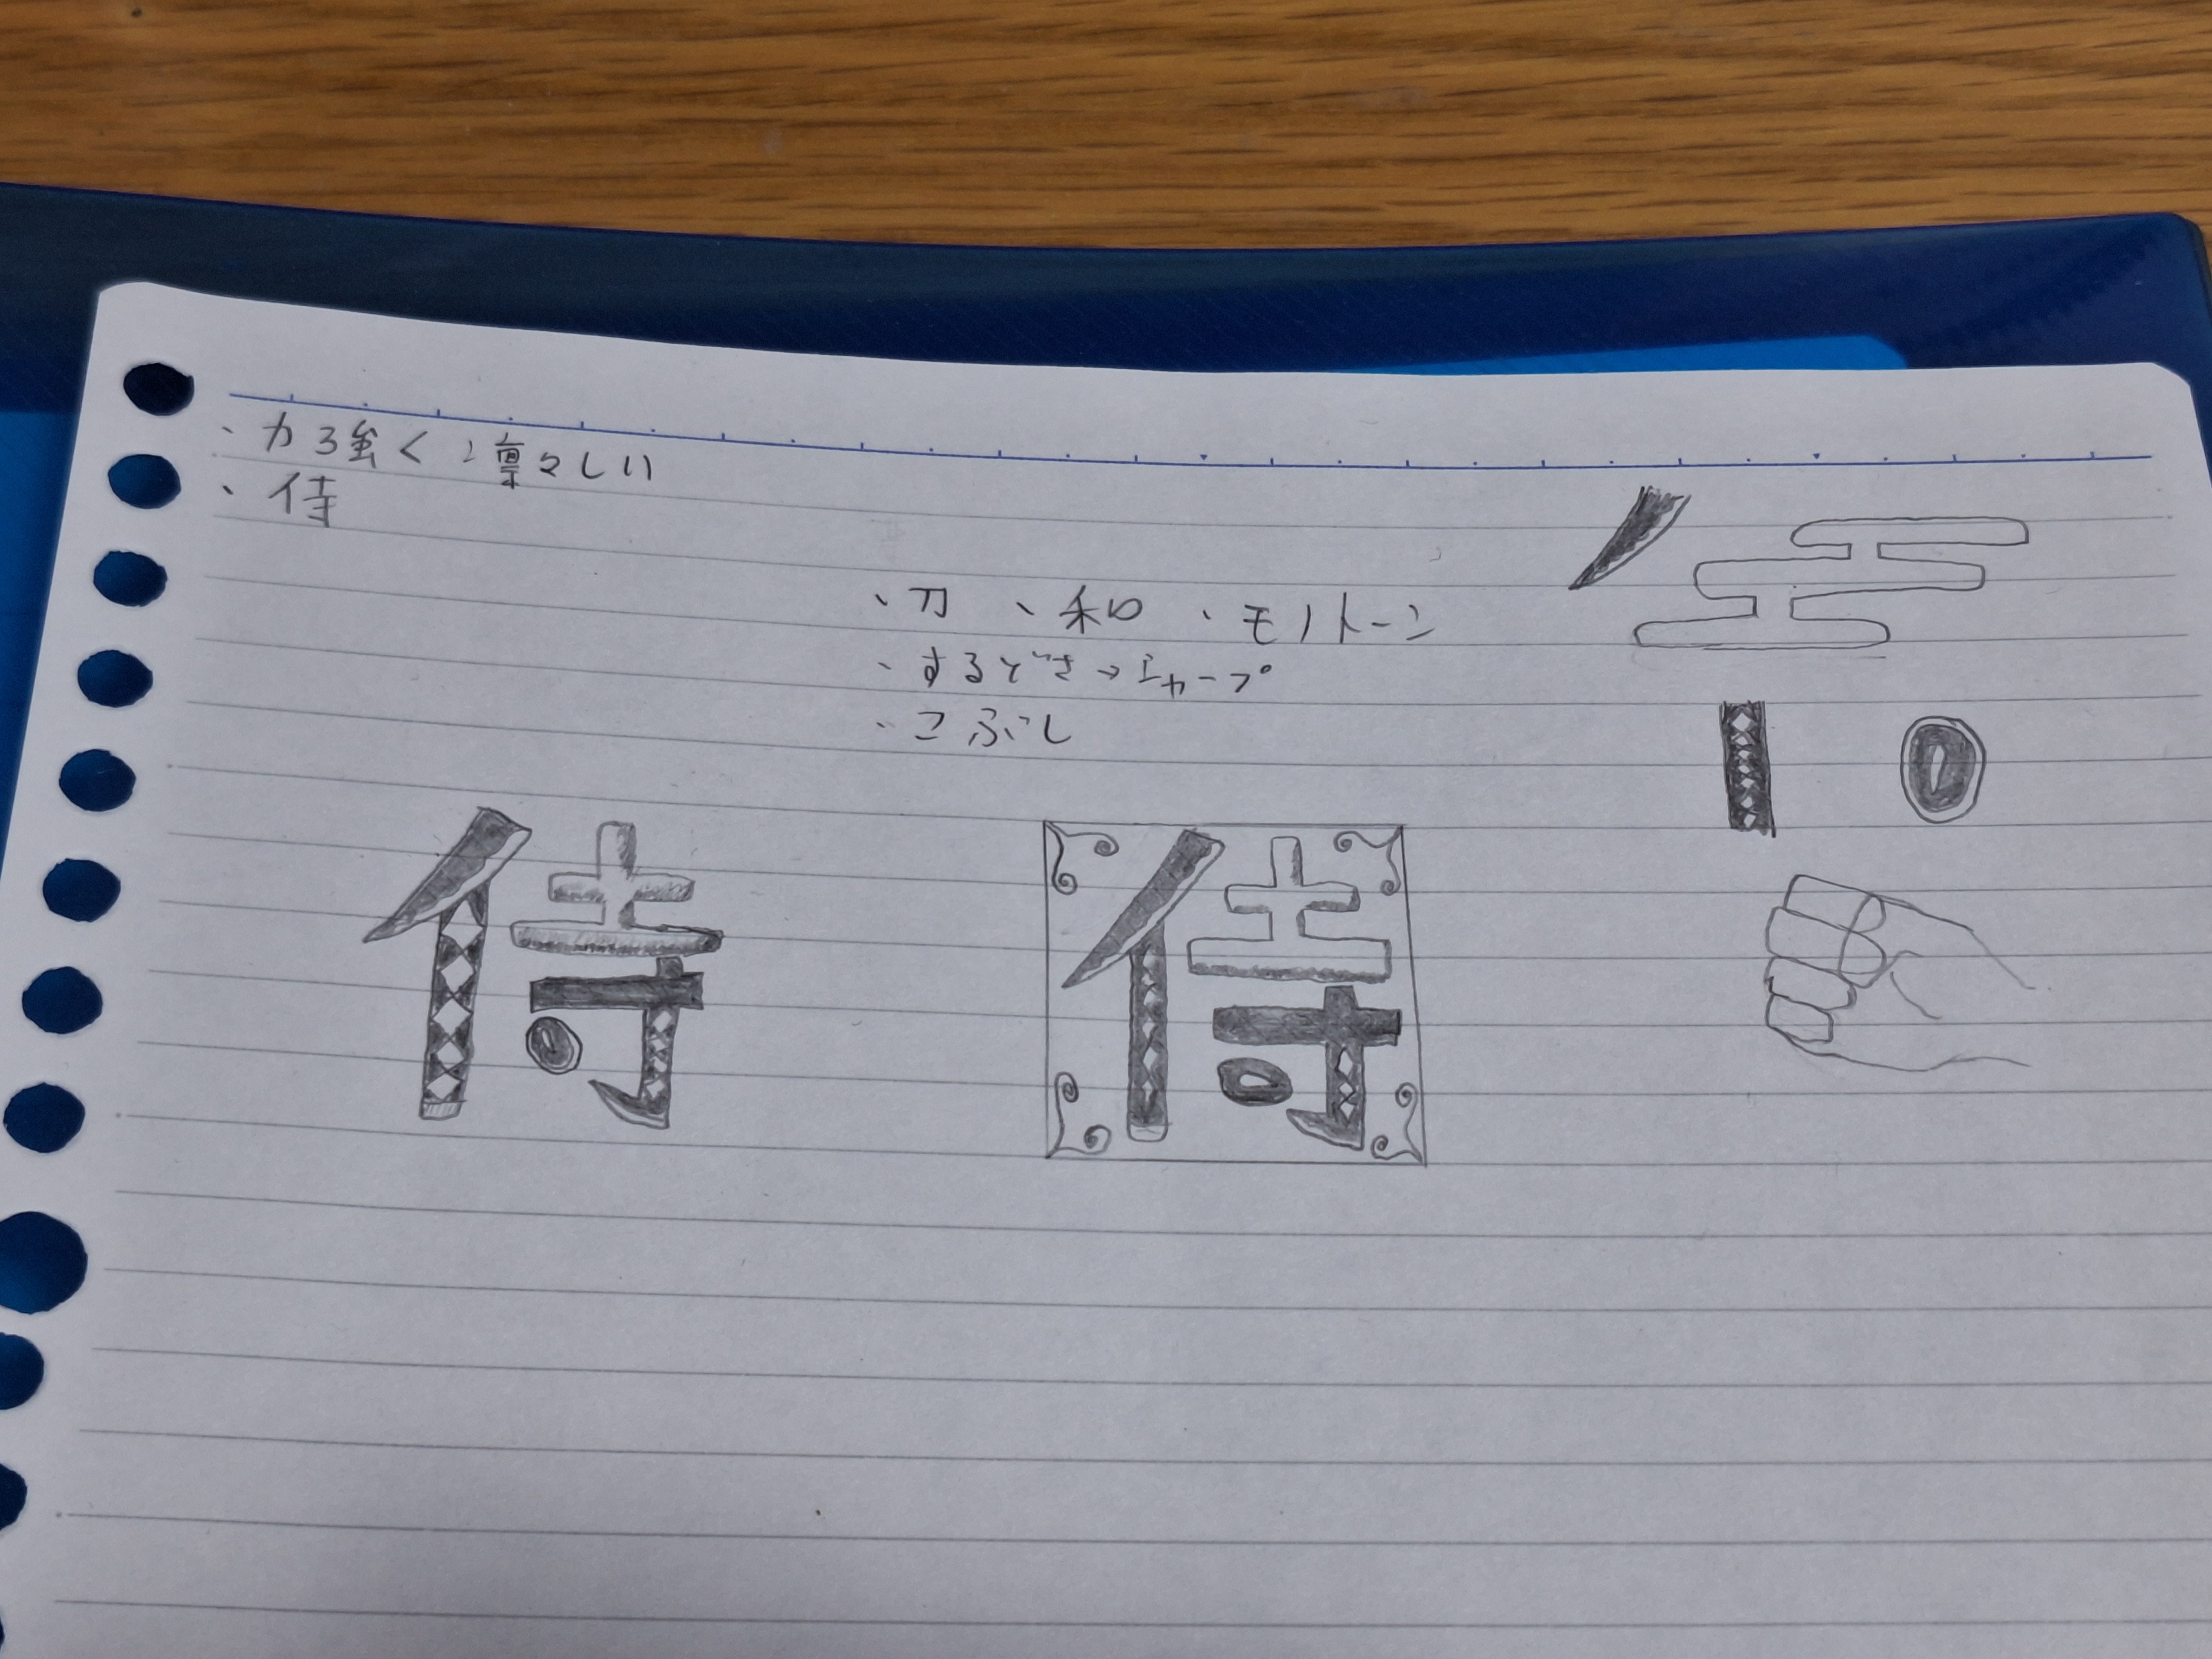 ・力強く凛々しい
・侍
・刀 ・和 ・モノトーン
・するどさ→シャープ
・こぶし
侍 侍